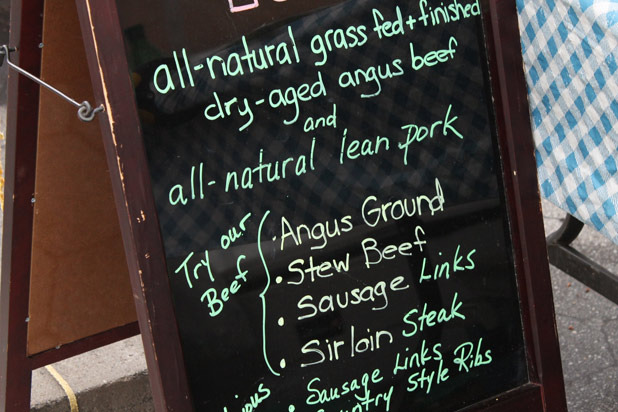 all-natural grass fed + finished
dry-aged angus beef
and
all-natural lean pork
Try our
Beef
· Angus Ground
· Stew Beef
· Sausage Links
· Sirloin Steak
· Sausage Links
Country Style Ribs